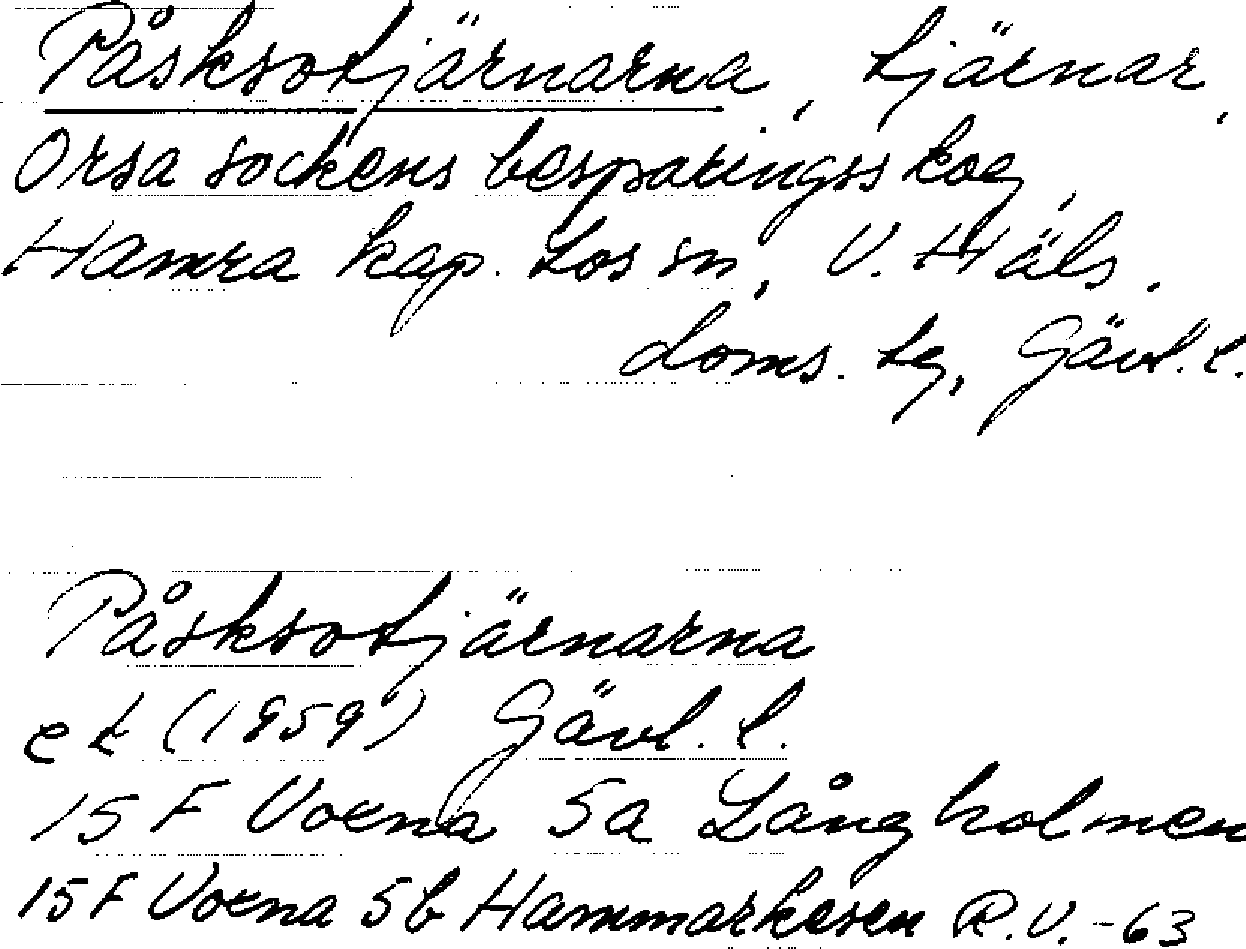 Påsksotjärnarna, tjärnar,
Orsa sockens besparingsskog,
Hamra kap. Los sn, V. Häls.
doms. tg, Gävl. l.
Påsksotjärnarna
et (1959) Gävl. l.
15 F Voxna 5a Långholmen
15 F Voxna 5b Hammarkesen R.V. -63